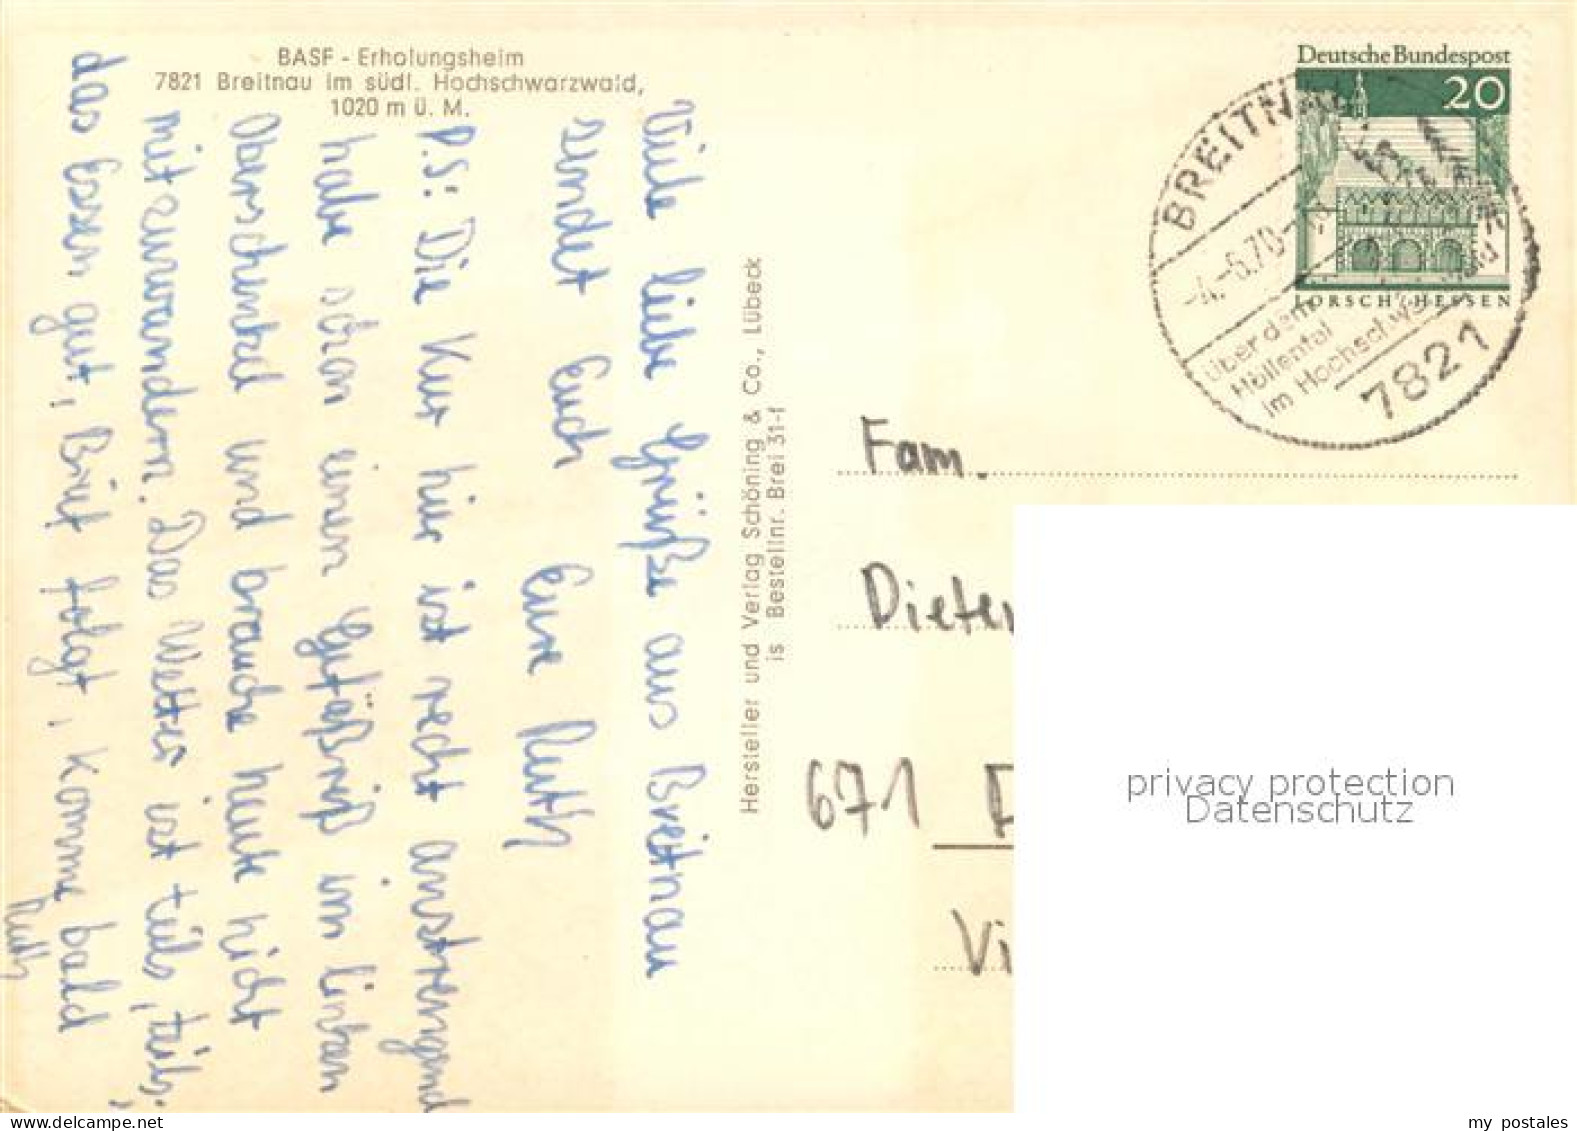 BASF - Erholungsheim
7821 Breitnau im südl. Hochschwarzwald,
1020 m ü. M.
Viele liebe Grüße aus Breitnau
sendet Euch
Eure Ruth
P.S: Die Kur hier ist recht anstrengend
habe schon einen Gefäßriß im linken
Oberschenkel und brauche heute nicht
mitzuwandern. Das Wetter ist teils, teils,
das Essen gut, Brief folgt, komme bald
Ruth
Hersteller und Verlag Schöning & Co., Lübeck
is Bestellnr. Brei 31-f
Deutsche Bundespost
20
LORSCH HESSEN
BREITNAU
-4.-6.70-
über dem
Höllental
im Hochschw
7821
Fam.
Dieter
671
Vi
privacy protection
Datenschutz
delcampe.net
my_postales